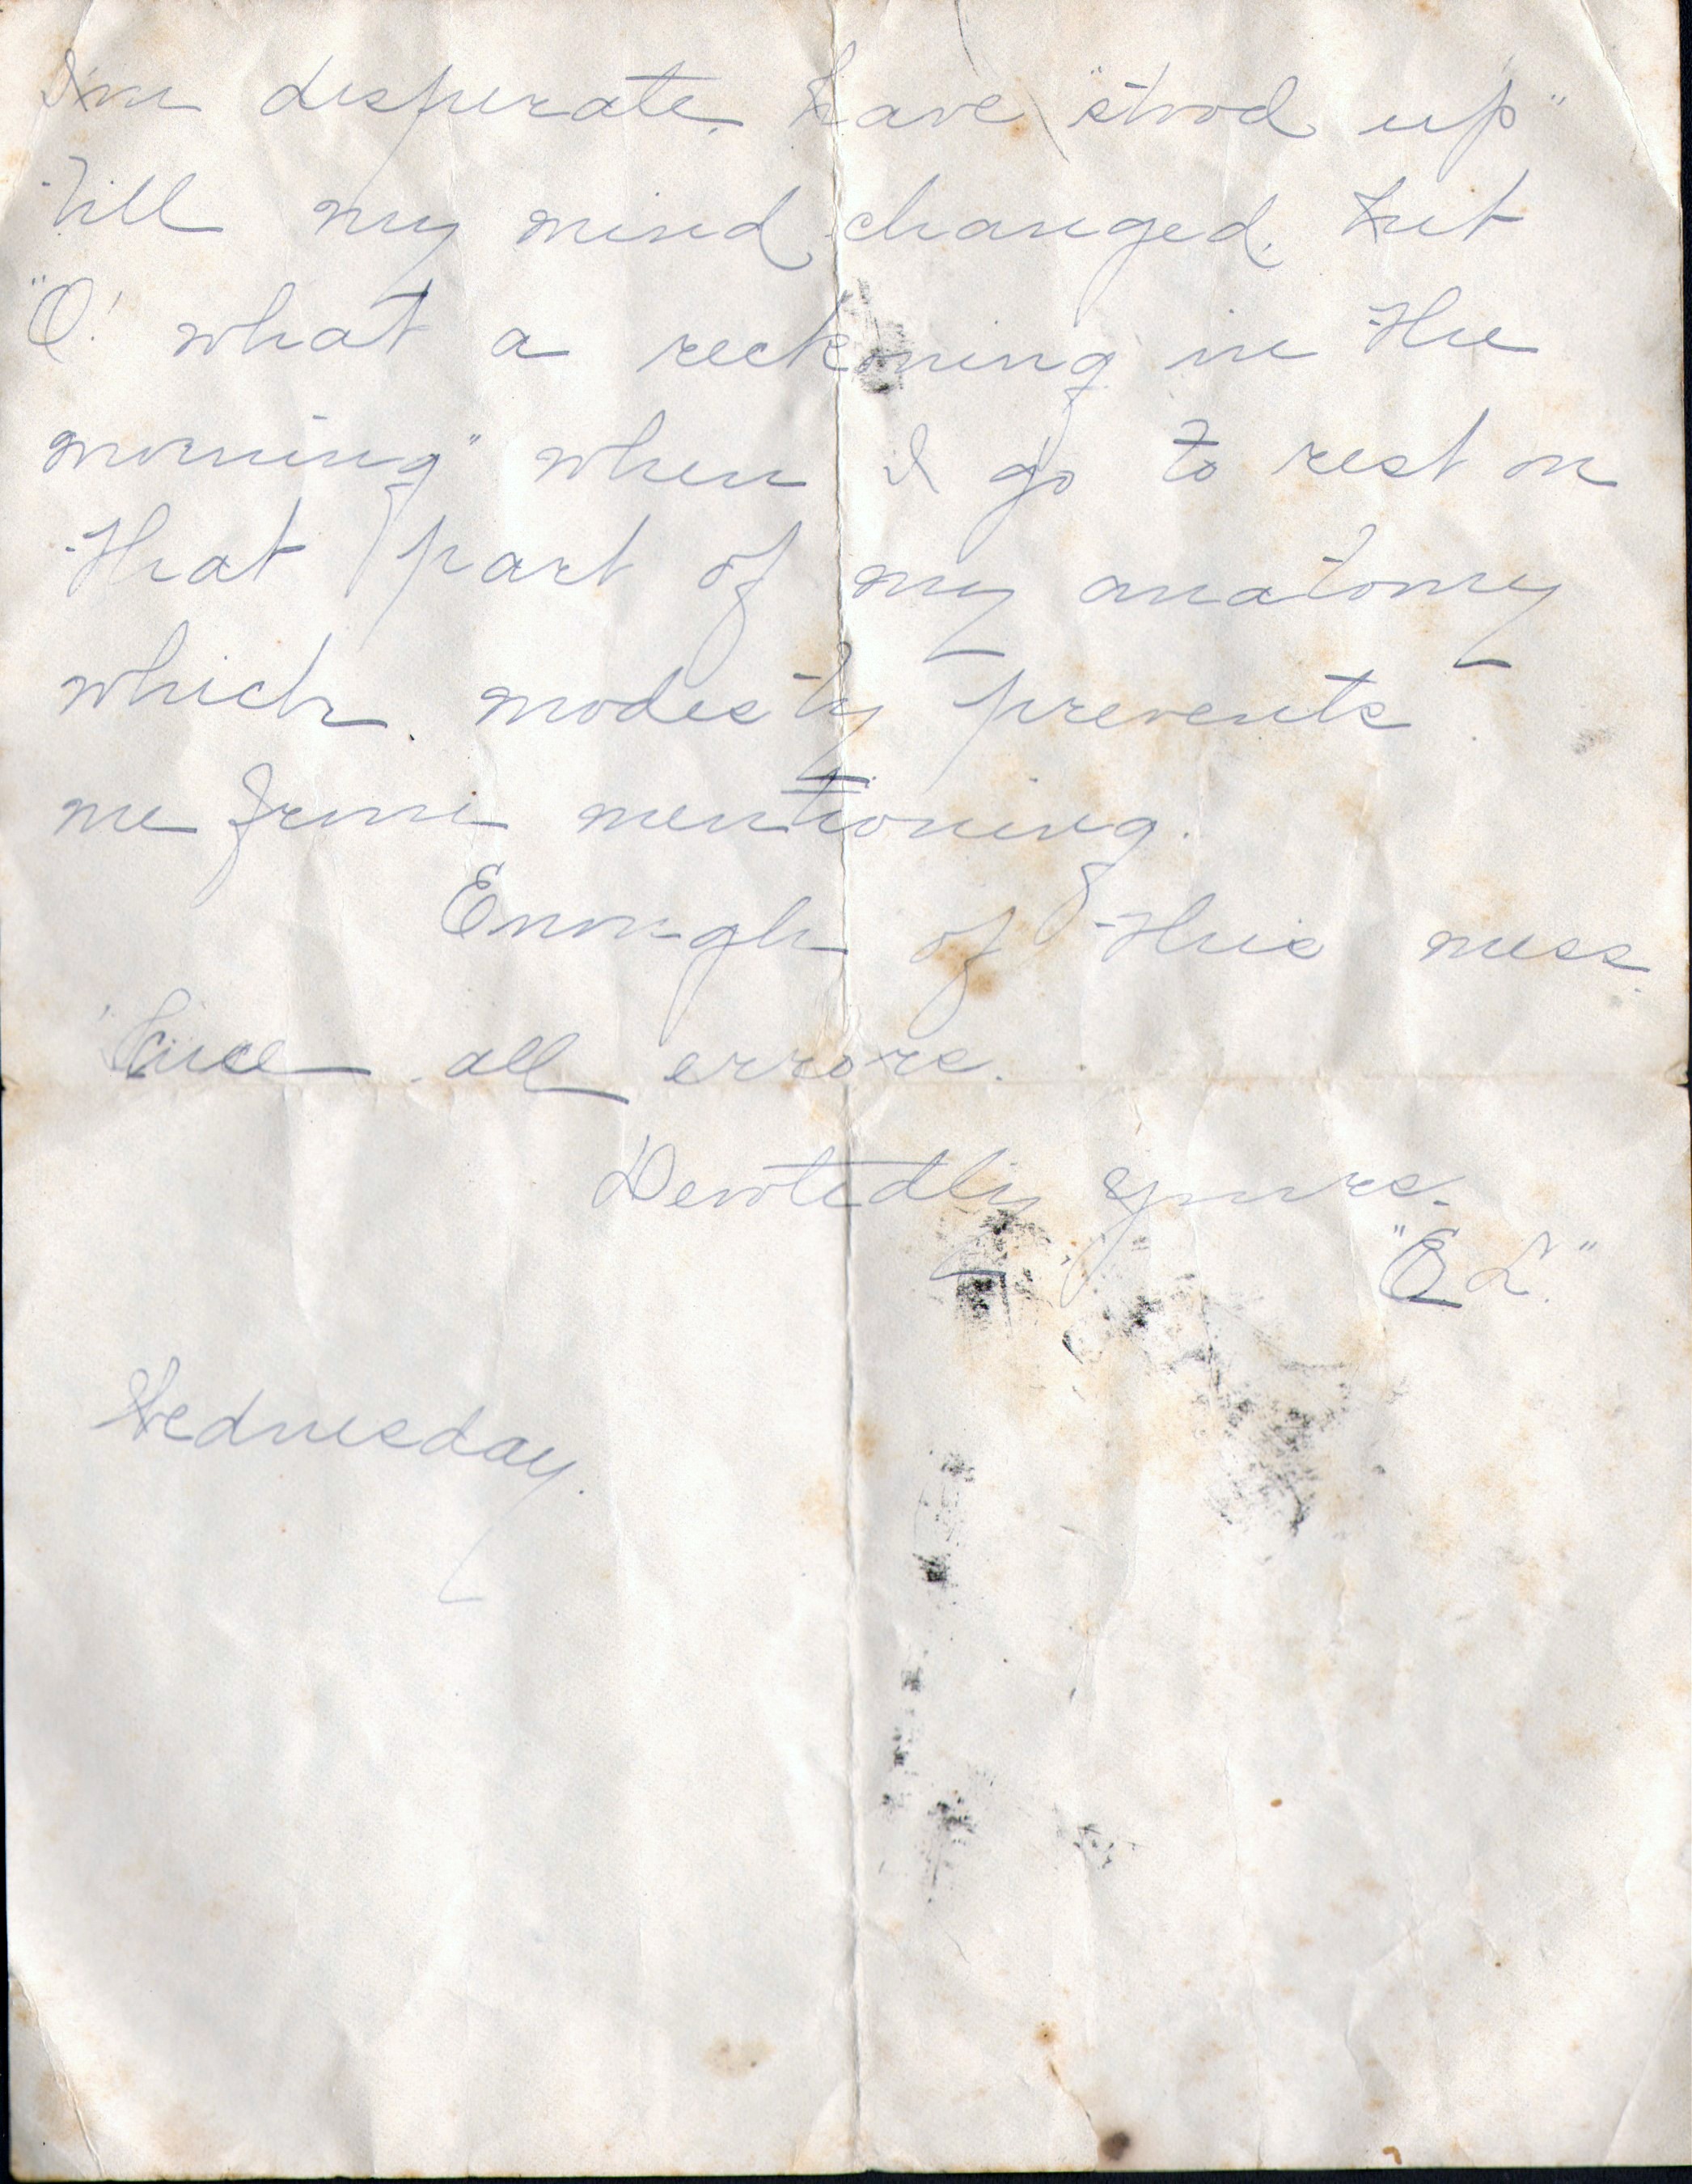 I'm desperate. Have "stood up"
till my mind changed. but
"O! what a reckoning in the
morning" when I go to rest on
that part of my anatomy
which modesty prevents
me from mentioning.
Enough of this mess.
'Scuse all errors.
Devotedly yours.
"E L."
Wednesday.